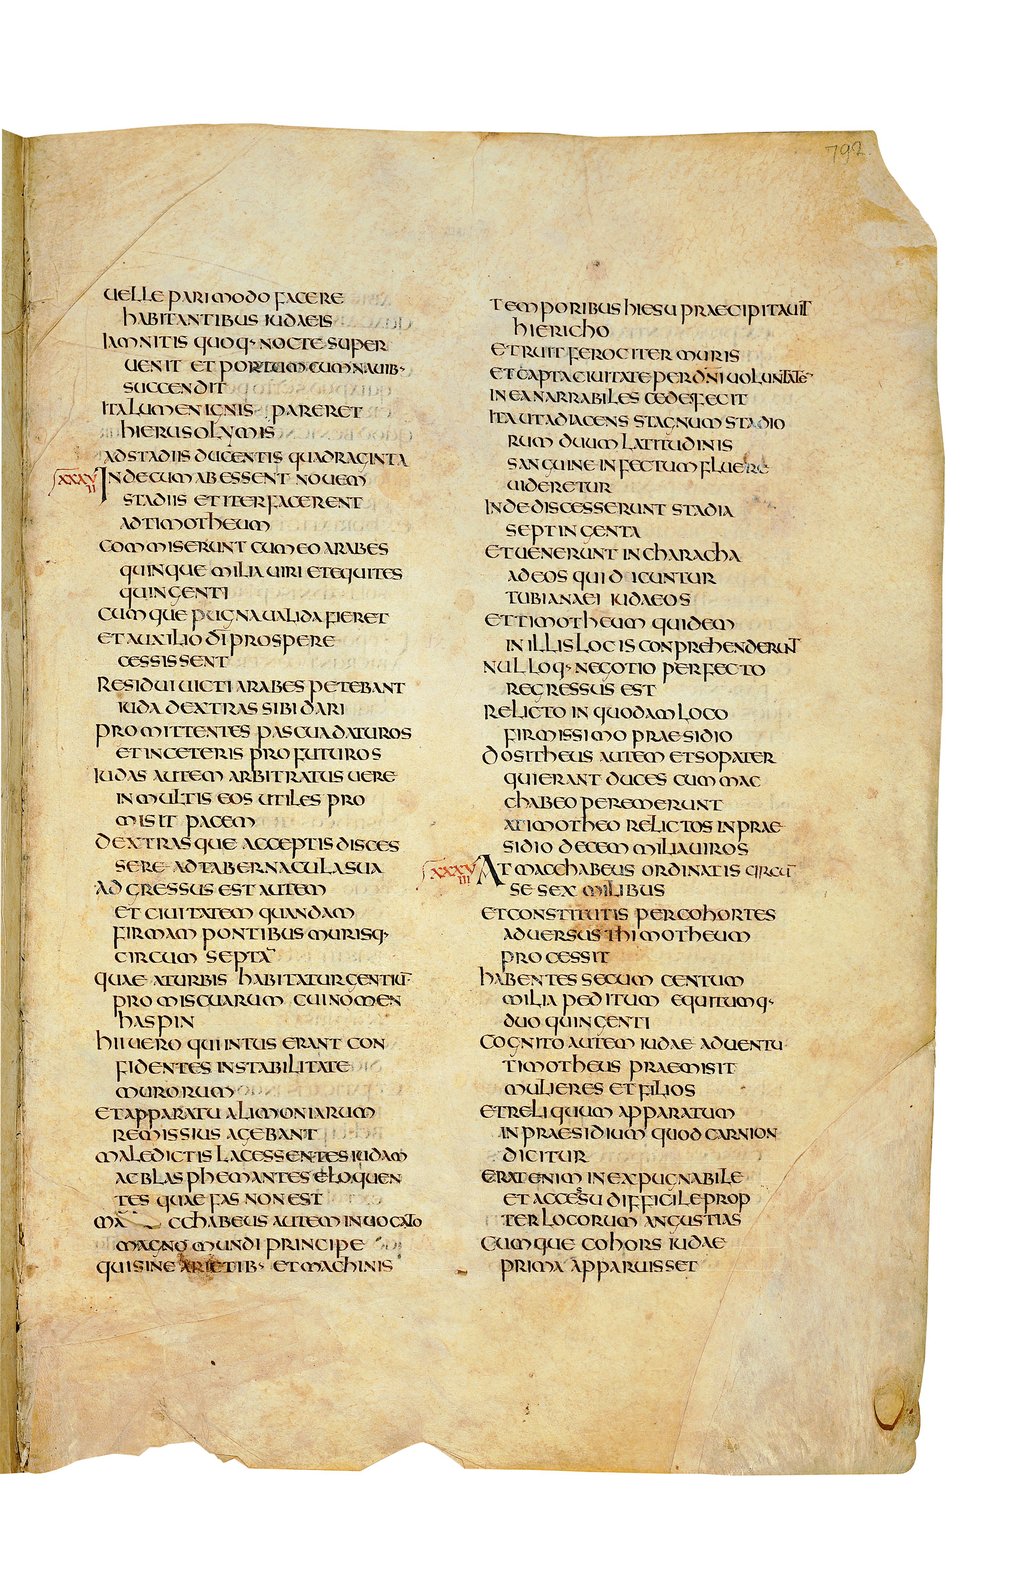 792
uelle pari modo facere
habitantibus iudaeis
iamnitis quoq· nocte super
uenit et portum cum nauib·
succendit
ita lumen ignis pareret
hierusolymis
ad stadiis ducentis quadraginta
XXXVII Inde cum abessent nouem
stadiis et iter facerent
ad timotheum
commiserunt cum eo arabes
quinque milia uiri et equites
quingenti
cumque pugna ualida fieret
et auxilio dī prospere
cessissent
residui uicti arabes petebant
iuda dextras sibi dari
promittentes pascua daturos
et in ceteris profuturos
iudas autem arbitratus uere
in multis eos utiles pro
misit pacem
dextrasque acceptis disces
sere ad tabernacula sua
adgressus est autem
et ciuitatem quandam
firmam pontibus murisq·
circum septā
quae a turbis habitatur gentiū
promiscuarum cui nomen
haspin
hii uero qui intus erant con
fidentes in stabilitate
murorum
et apparatu alimoniarum
remissius agebant
maledictis lacessentes iudam
ac blasphemantes et loquen
tes quae fas non est
ma cchabeus autem inuocato
magno mundi principe
qui sine arietib· et machinis
temporibus hiesu praecipitauit
hiericho
et ruit ferociter muris
et capta ciuitate per dn̄i uoluntate
inenarrabiles cede fecit
ita ut adiacens stagnum stadio
rum duum latitudinis
sanguine infectum fluere
uideretur
inde discesserunt stadia
septingenta
et uenerunt in characha
ad eos qui dicuntur
tubianaei iudaeos
et timotheum quidem
in illis locis conprehenderunt
nulloq· negotio perfecto
regressus est
relicto in quodam loco
firmissimo praesidio
dositheus autem et sopater
qui erant duces cum mac
chabeo peremerunt
a timotheo relictos in prae
sidio decem milia uiros
XXXVIII At macchabeus ordinatis circū
se sex milibus
et constitutis per cohortes
aduersus thimotheum
processit
habentes secum centum
milia peditum equitumq·
duo quingenti
cognito autem iudae aduentu
timotheus praemisit
mulieres et filios
et reliquum apparatum
in praesidium quod carnion
dicitur
erat enim inexpugnabile
et accesu difficile prop
ter locorum angustias
cumque cohors iudae
prima apparuisset